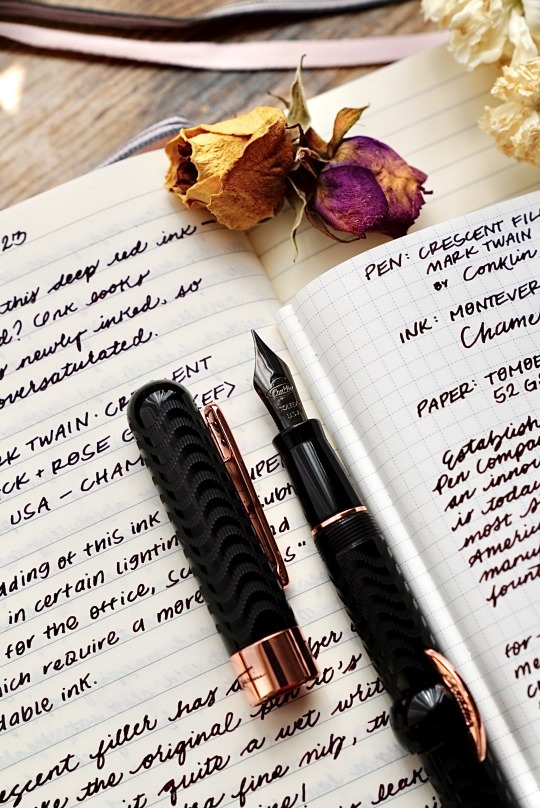 23
this deep red ink —
d? Conk looks
newly inked, so
oversaturated.
RK TWAIN · CRESCENT
CK + ROSE G
EF>
USA — CHAM
dding of this ink
in certain lightin
for the office, sc
s"
hich require a more
dable ink.
escent filler has a
ber
re the original pen it's
it quite a wet writ
a fine nib, th
leak
PEN: CRESCENT FILL
MARK TWAIN
BY Conklin
INK: MONTEVER
Chame
PAPER: TOMOE
52 G
Establish
Pen Compa
an innov
is today
most s
Americ
manu
fount
for
me
Conklin
TOLEDO
U.S.A.